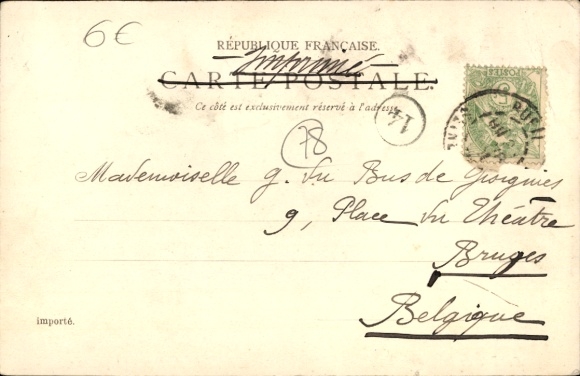 6€
RÉPUBLIQUE FRANÇAISE.
Imprimé
CARTE POSTALE.
Ce côté est exclusivement réservé à l'adresse
14
78
RUEIL
Mademoiselle G. du Bus de Gisignies
9, Place du Théâtre
Bruges
Belgique
importé.